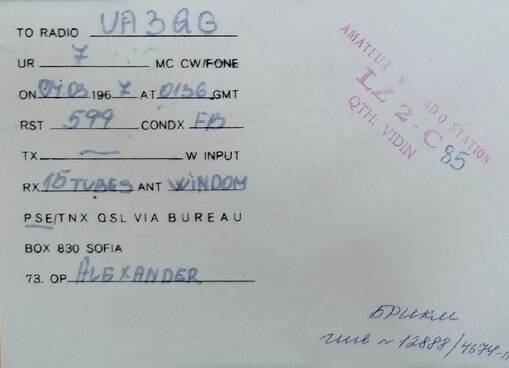 TO RADIO UA3QG
UR 7 MC CW/FONE
ON 04.03 1967 AT 0136 GMT
RST 599 CONDX FB
TX — W INPUT
RX 15 TUBES ANT WINDOM
PSE/TNX QSL VIA BUREAU
BOX 830 SOFIA
73. OP ALEXANDER
AMATEUR RADIO STATION
LZ 2-C 85
QTH: VIDIN
БРИКМ
инв n 12888/4674-